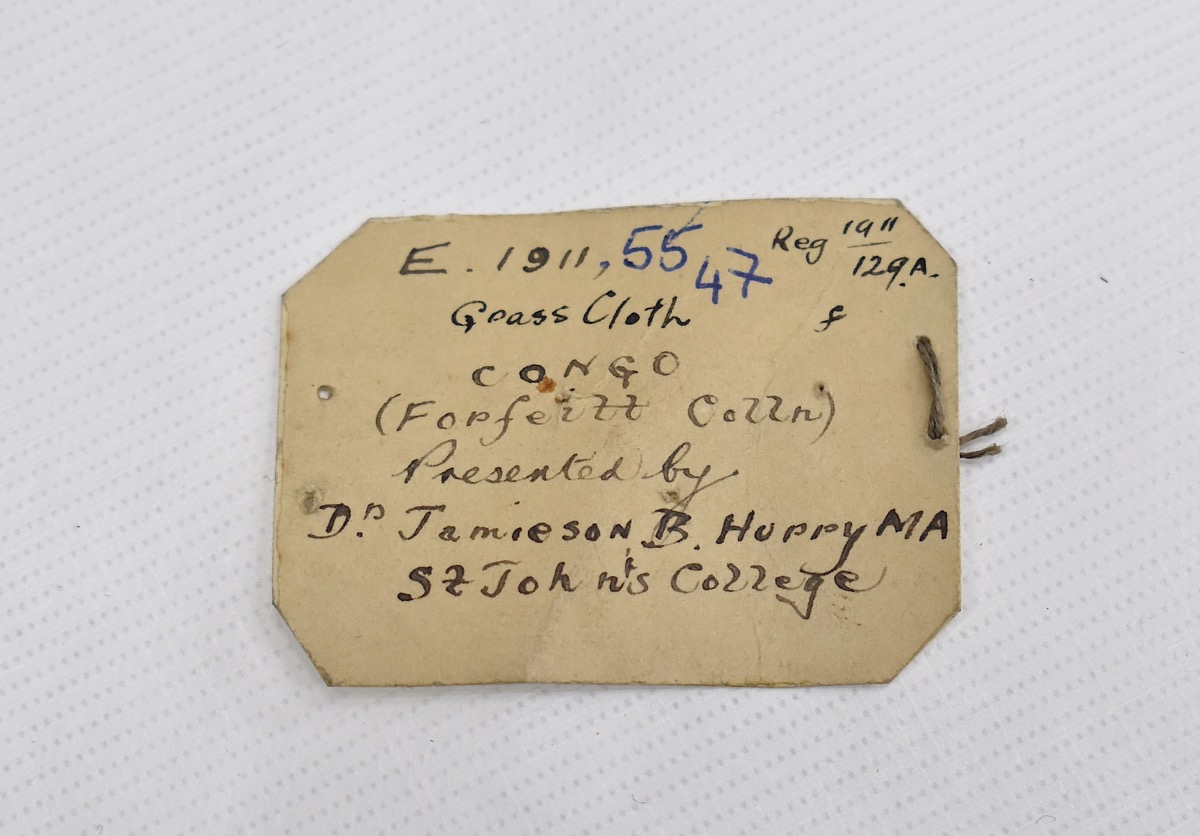 E. 1911, 55 47 Reg 1911/129.A.
Grass Cloth f
CONGO
(Forfeitt Colln)
Presented by
Dr. Jamieson B. Hurry MA
St John's College